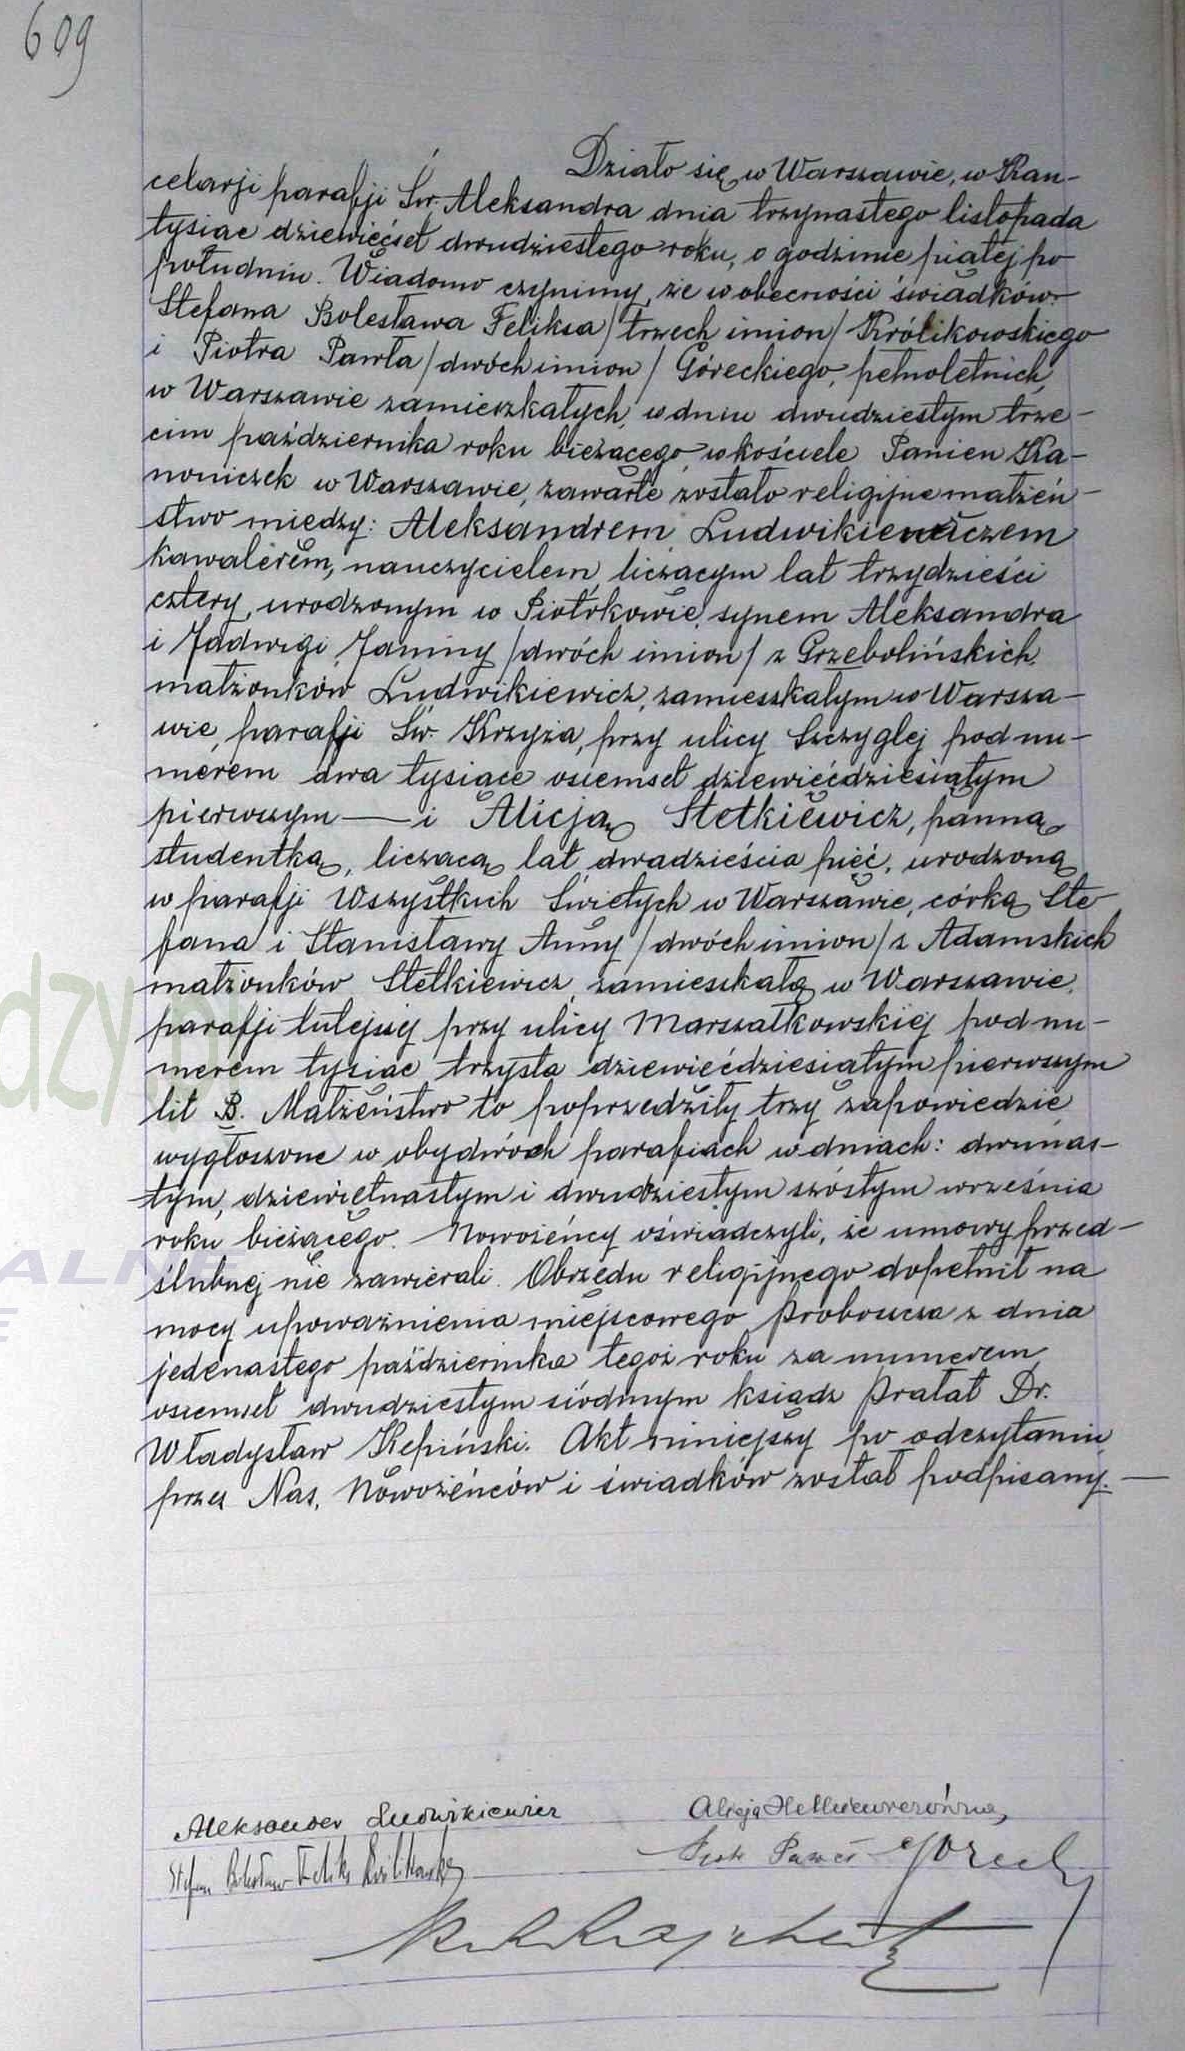 609
Działo się w Warszawie, w Kan-
celarji parafji Św. Aleksandra dnia trzynastego listopada
tysiąc dziewięćset dwudziestego roku, o godzinie piątej po
południu. Wiadomo czynimy, że w obecności świadków:
Stefana Bolesława Feliksa /trzech imion/ Królikowskiego
i Piotra Pawła /dwóch imion/ Góreckiego, pełnoletnich,
w Warszawie zamieszkałych, w dniu dwudziestym trze-
cim października roku bieżącego, w kościele Panien Ka-
noniczek w Warszawie, zawarte zostało religijne małżeń-
stwo między: Aleksandrem Ludwikiewiczem
kawalerem, nauczycielem, liczącym lat trzydzieści
cztery, urodzonym w Piotrkowie, synem Aleksandra
i Jadwigi Janiny /dwóch imion/ z Grzebolińskich,
małżonków Ludwikiewicz, zamieszkałym w Warsza-
wie, parafji Św. Krzyża, przy ulicy Szczyglej pod nu-
merem dwa tysiące osiemset dziewięćdziesiątym
pierwszym — i Alicją Stetkiewicz, panną,
studentką, liczącą lat dwadzieścia pięć, urodzoną
w parafji Wszystkich Świętych w Warszawie, córką Ste
fana i Stanisławy Anny /dwóch imion/ z Adamskich
małżonków Stetkiewicz, zamieszkałą w Warszawie,
parafji tutejszej przy ulicy Marszałkowskiej pod nu-
merem tysiąc trzysta dziewięćdziesiątym pierwszym
lit B. Małżeństwo to poprzedziły trzy zapowiedzie
wygłoszone w obydwóch parafiach w dniach: dwunas-
tym, dziewiętnastym i dwudziestym szóstym września
roku bieżącego. Nowożeńcy oświadczyli, że umowy przed-
ślubnej nie zawierali. Obrzędu religijnego dopełnił na
mocy upoważnienia miejscowego Proboszcza z dnia
jedenastego października tegoż roku za numerem
osiemset dwudziestym siódmym ksiądz Prałat Dr.
Władysław Kępiński. Akt niniejszy po odczytaniu
przez Nas, Nowożeńców i świadków został podpisany. —
Aleksander Ludwikiewicz
Alicja Stetkiewiczówna
Stefan Bolesław Feliks Królikowski
Piotr Paweł Górecki
dzy
ALNE
E